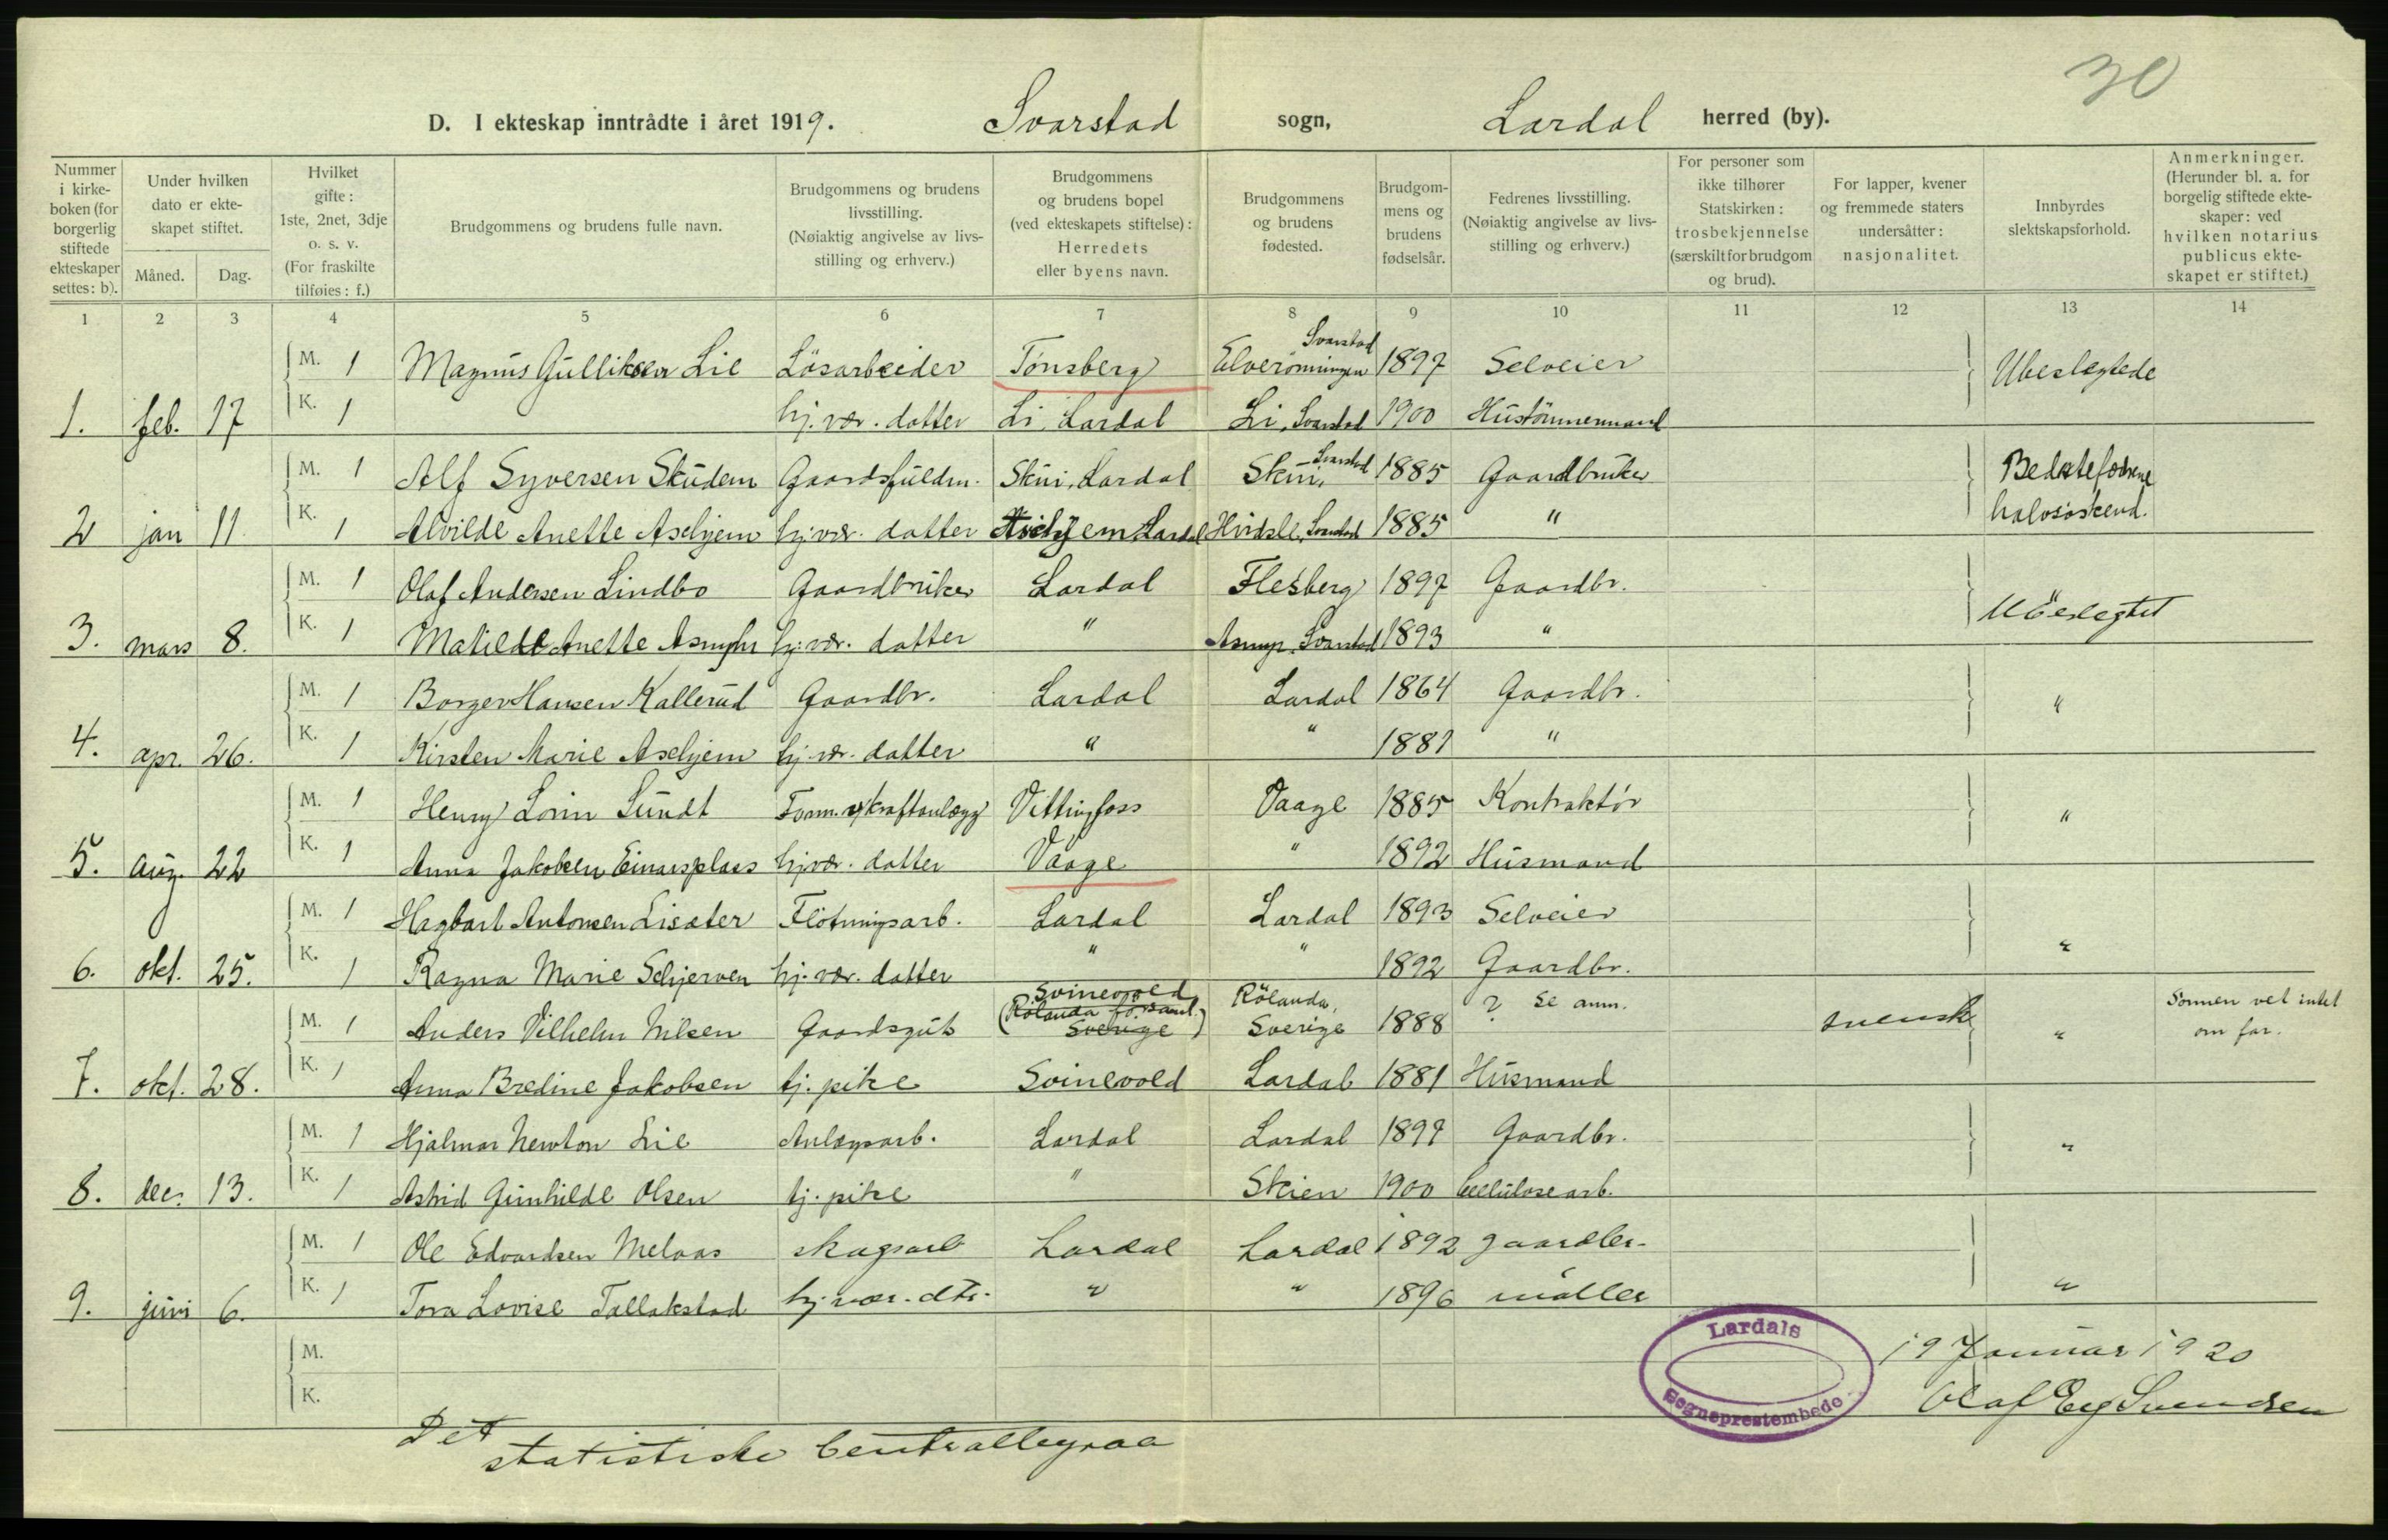 30
D. I ekteskap inntrådte i året 1919. Svarstad sogn, Lardal herred (by).
Nummer i kirke- boken (for borgerlig stiftede ekteskaper settes: b).
Under hvilken dato er ekte- skapet stiftet.
Måned. Dag.
Hvilket gifte: 1ste, 2net, 3dje o. s. v. (For fraskilte tilføies: f.)
Brudgommens og brudens fulle navn.
Brudgommens og brudens livsstilling. (Nøiaktig angivelse av livs- stilling og erhverv.)
Brudgommens og brudens bopel (ved ekteskapets stiftelse): Herredets eller byens navn.
Brudgommens og brudens fødested.
Brudgom- mens og brudens fødselsår.
Fedrenes livsstilling. (Nøiaktig angivelse av livs- stilling og erhverv.)
For personer som ikke tilhører Statskirken: trosbekjennelse (særskilt for brudgom og brud).
For lapper, kvener og fremmede staters undersåtter: nasjonalitet.
Innbyrdes slektskapsforhold.
Anmerkninger. (Herunder bl. a. for borgelig stiftede ekte- skaper: ved hvilken notarius publicus ekte- skapet er stiftet.)
1 2 3 4 5 6 7 8 9 10 11 12 13 14
M. 1 Magnus Gulliksen Lie Løsarbeider Tønsberg Elverønningen Svarstad 1897 Selveier Ubeslegtede
1. feb. 17 K. 1 hj. vær. datter Li, Lardal Li, Svarstad 1900 Hustømmermand
M. 1 Alf Syversen Skudem Gaardsfuldm. Skui, Lardal Skui, Svarstad 1885 Gaardbruker
2 jan 11 K. 1 Alvilde Anette Aschjem hj. vær. datter Aschjem Lardal Svarstad 1885 " halvsøskend.
M. 1 Olaf Andersen Lindbo Gaardbruker Lardal Flesberg 1897 Gaardbr.
3. mars 8. K. 1 Matilde Anette hj. vær. datter " Svarstad 1893 " Ubeslegtet
M. 1 Borger Hansen Kallerud Gaardbr. Lardal Lardal 1864 Gaardbr. "
4. apr. 26. K. 1 Kirsten Marie Aschjem hj. vær. datter " " 1881 "
M. 1 Henry Lorin Sundt Form. v/kraftanlegg Vittingfoss Vaage 1885 Kontraktør "
5. aug. 22 K. 1 Anna Jakobsen Einarsplass hj. vær. datter Vaage " 1892 Husmand
M. 1 Hagbart Antonsen Lisæter Fløtningsarb. Lardal Lardal 1893 Selveier "
6. okt. 25. K. 1 Ragna Marie Schjerven hj. vær. datter " " 1892 Gaardbr.
M. 1 Anders Vilhelm Nilsen Gaardsgut Svinevold (Rölanda Sverige) Rölanda, Sverige 1888 ? Se anm. svensk " Sønnen vet intet om far.
7. okt. 28. K. 1 Anna Bredine Jakobsen tj. pike Svinevold Lardal 1881 Husmand
M. 1 Hjalmar Newton Lie Anlegsarb. Lardal Lardal 1897 Gaardbr. "
8. des. 13. K. 1 Astrid Gunhilde Olsen tj. pike " Skien 1900 Cellulosearb.
M. 1 Ole Edvardsen Melaas skogsarb Lardal Lardal 1892 gaardbr.
9. juni 6. K. 1 Tora Lovise Tallakstad hj. vær. dtr. " " 1896 møller "
M.
K.
Lardals Sogneprestembede
19 Januar 1920
Olaf Eeg Svendsen
Det statistiske Centralbyraa